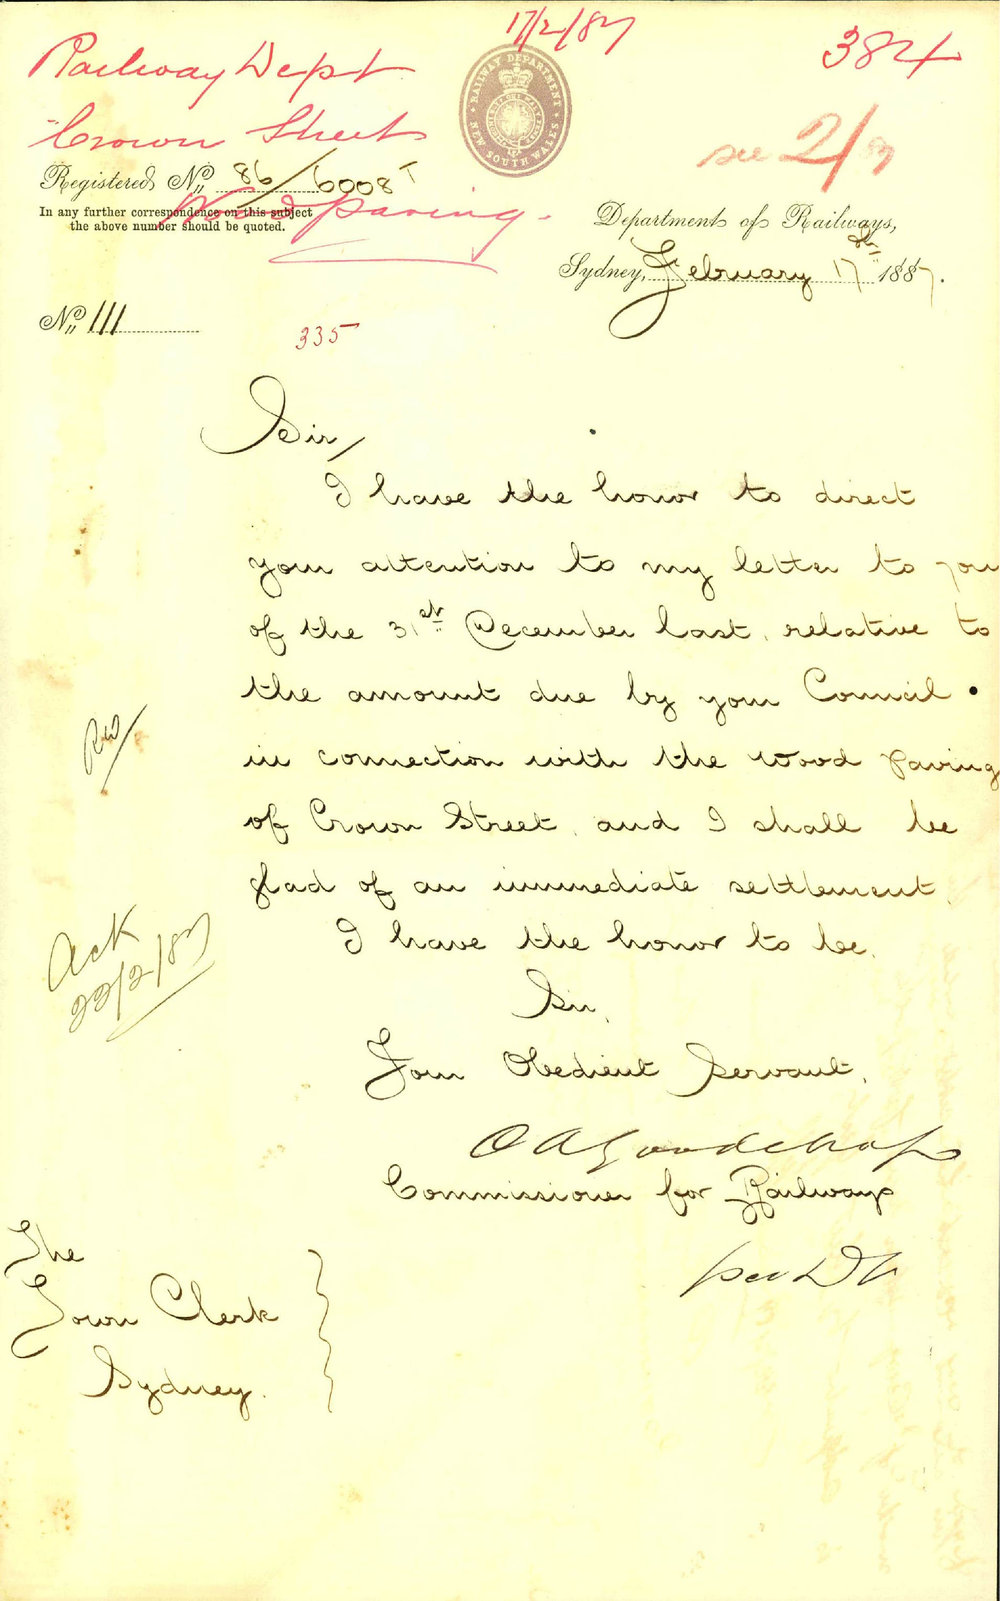 17/2/87
384
Railway Dept
Crown Street
Wood paving.
see 2/87
RAILWAY DEPARTMENT
NEW SOUTH WALES
Registered No. 86/6008 T
In any further correspondence on this subject
the above number should be quoted.
Department of Railways,
Sydney, February 17th 1887.
No. 111
335
Sir/
I have the honor to direct
your attention to my letter to you
of the 31st December last, relative to
the amount due by your Council
in connection with the wood paving
of Crown Street, and I shall be
glad of an immediate settlement.
I have the honor to be,
Sir,
Your Obedient Servant,
Ch A Goodchap
Commissioner for Railways
per D V
Ack
22/2/87
The
Town Clerk
Sydney.